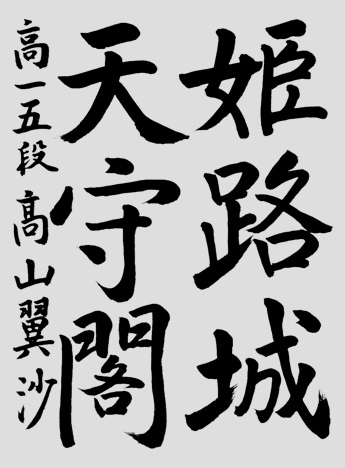 姫路城
天守閣
高一五段髙山翼沙